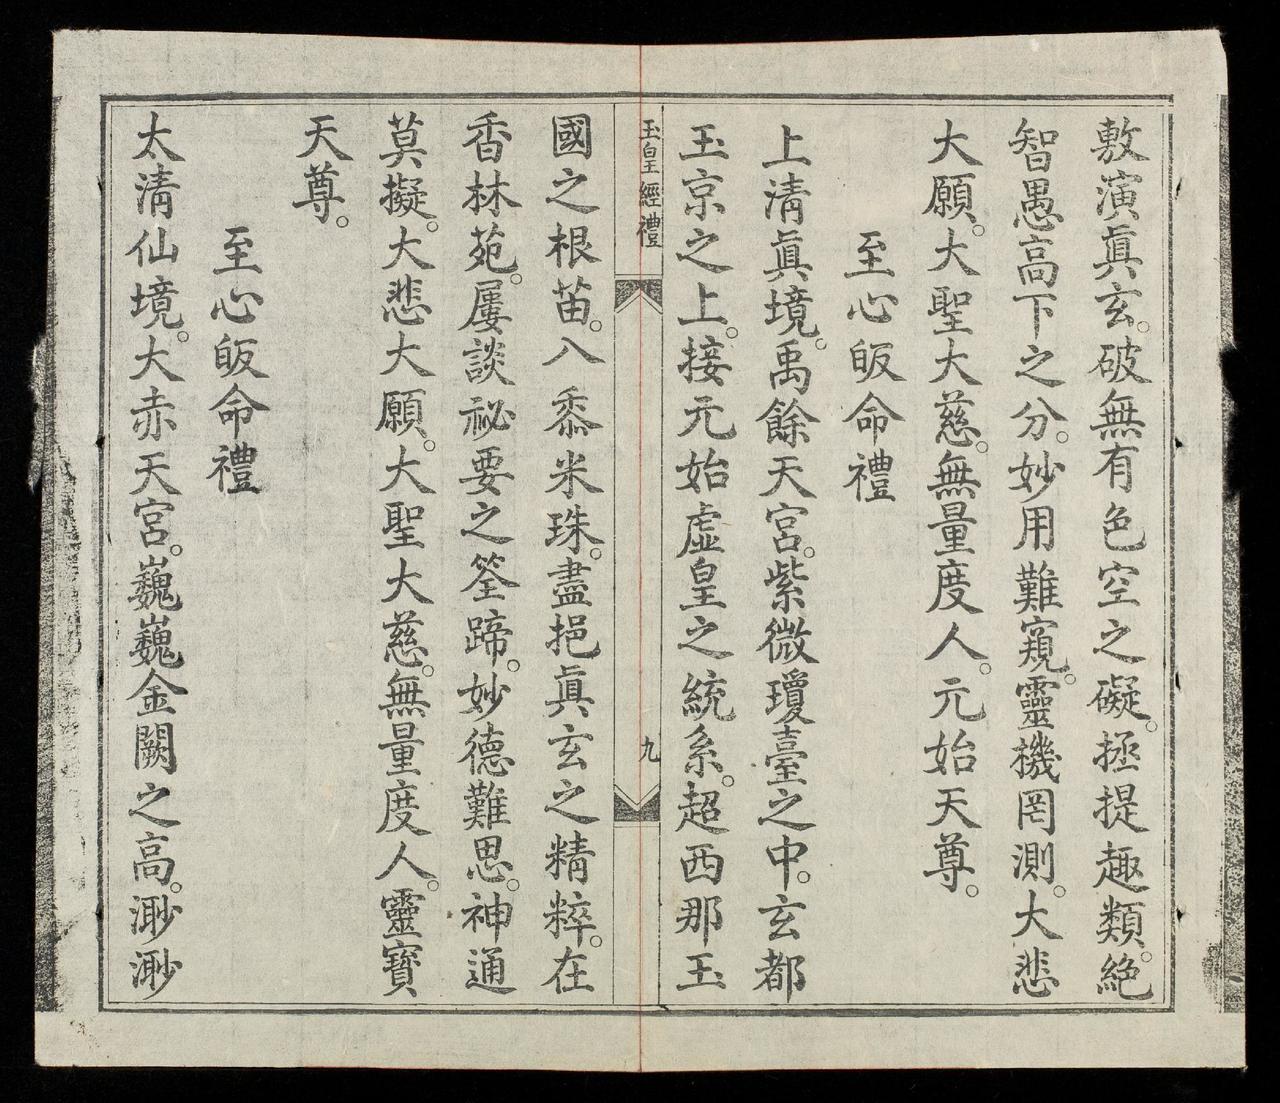 敷演眞玄。破無有色空之礙。拯提趣類。絕
智愚高下之分。妙用難窺。靈機罔測。大悲
大願。大聖大慈。無量度人。元始天尊。
至心皈命禮
上清眞境。禹餘天宮。紫微瓊臺之中。玄都
玉京之上。接元始虛皇之統系。超西那玉
玉皇經禮
九
國之根苗。八黍米珠。盡挹眞玄之精粹。在
香林苑。屢談祕要之筌蹄。妙德難思。神通
莫擬。大悲大願。大聖大慈。無量度人。靈寶
天尊。
至心皈命禮
太清仙境。大赤天宮。巍巍金闕之高。渺渺